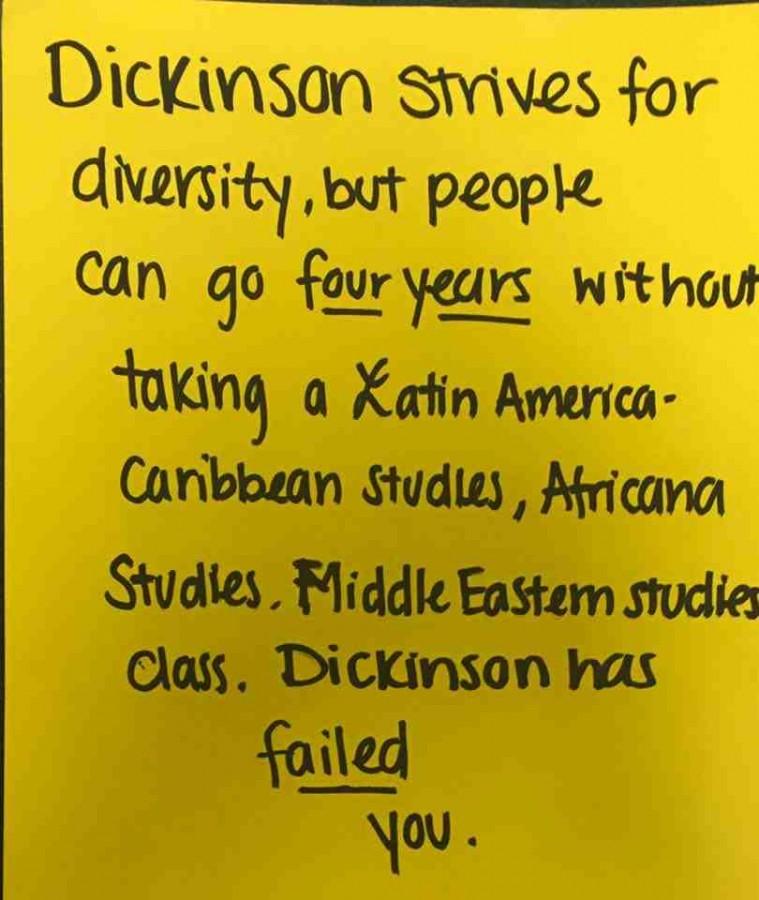 Dickinson strives for
diversity, but people
can go four years without
taking a Latin America-
Caribbean studies, Africana
Studies. Middle Eastern studies
class. Dickinson has
failed
you.